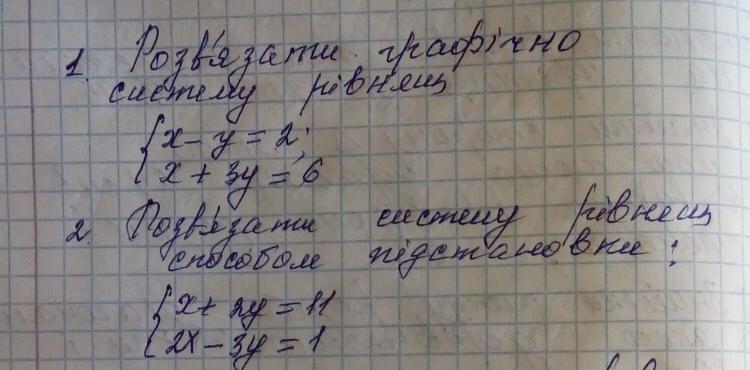 1. Розв'язати графічно
систему рівнянь
{x - y = 2;
x + 3y = 6
2. Розв'язати систему рівнянь
способом підстановки:
{x + 2y = 11
2x - 3y = 1